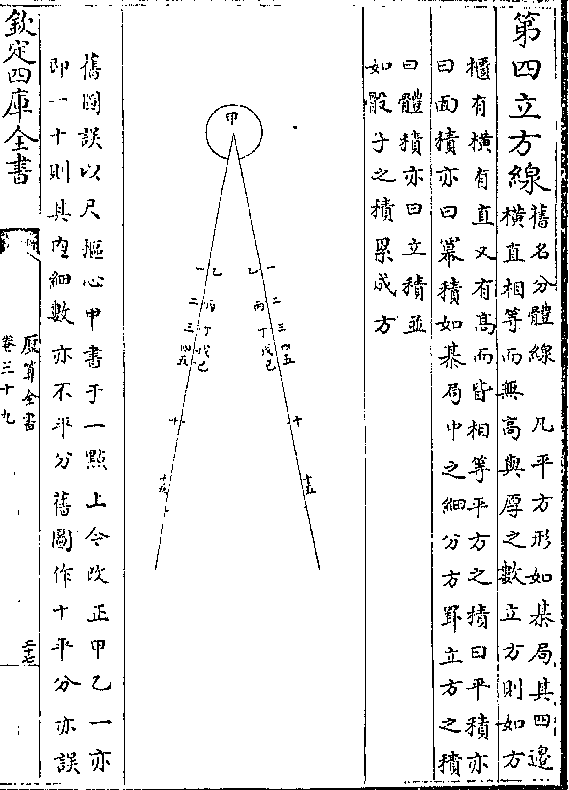 第四立方線
舊名分體線　凡平方形如棊局其四邊
橫直相等而無高與厚之數立方則如方
櫃有橫有直又有高而皆相等平方之積曰平積亦
曰面積亦曰冪積如棊局中之細分方罫立方之積
曰體積亦曰立積並
如骰子之積累成方
甲
乙 一
丙 二
丁 三
戊 四
己 五
十
十五
一 乙
二 丙
三 丁
四 戊
五 己
十
舊圖誤以尺樞心甲書于一點上今改正甲乙一亦
即一十則其內細數亦不平分舊圖作十平分亦誤
欽定四庫全書
厯算全書
卷三十九